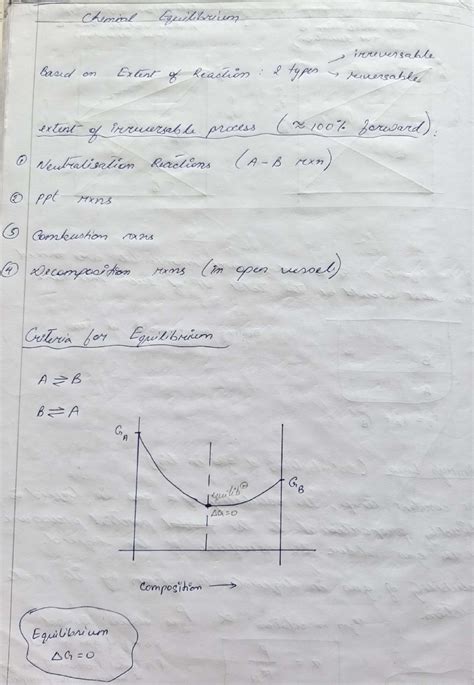 Chemical Equilibrium
Based on Extent of Reaction : 2 types → irreversable
→ reversable
extent of irreversable process (≈ 100% forward) :
① Neutralisation Reactions (A-B rxn)
② ppt rxns
③ Combustion rxns
④ Decomposition rxns (in open vessel)
Criteria for Equilibrium
A ⇌ B
B ⇌ A
G_A
G_B
equilib^m
ΔG=0
Composition →
Equilibrium
ΔG = 0